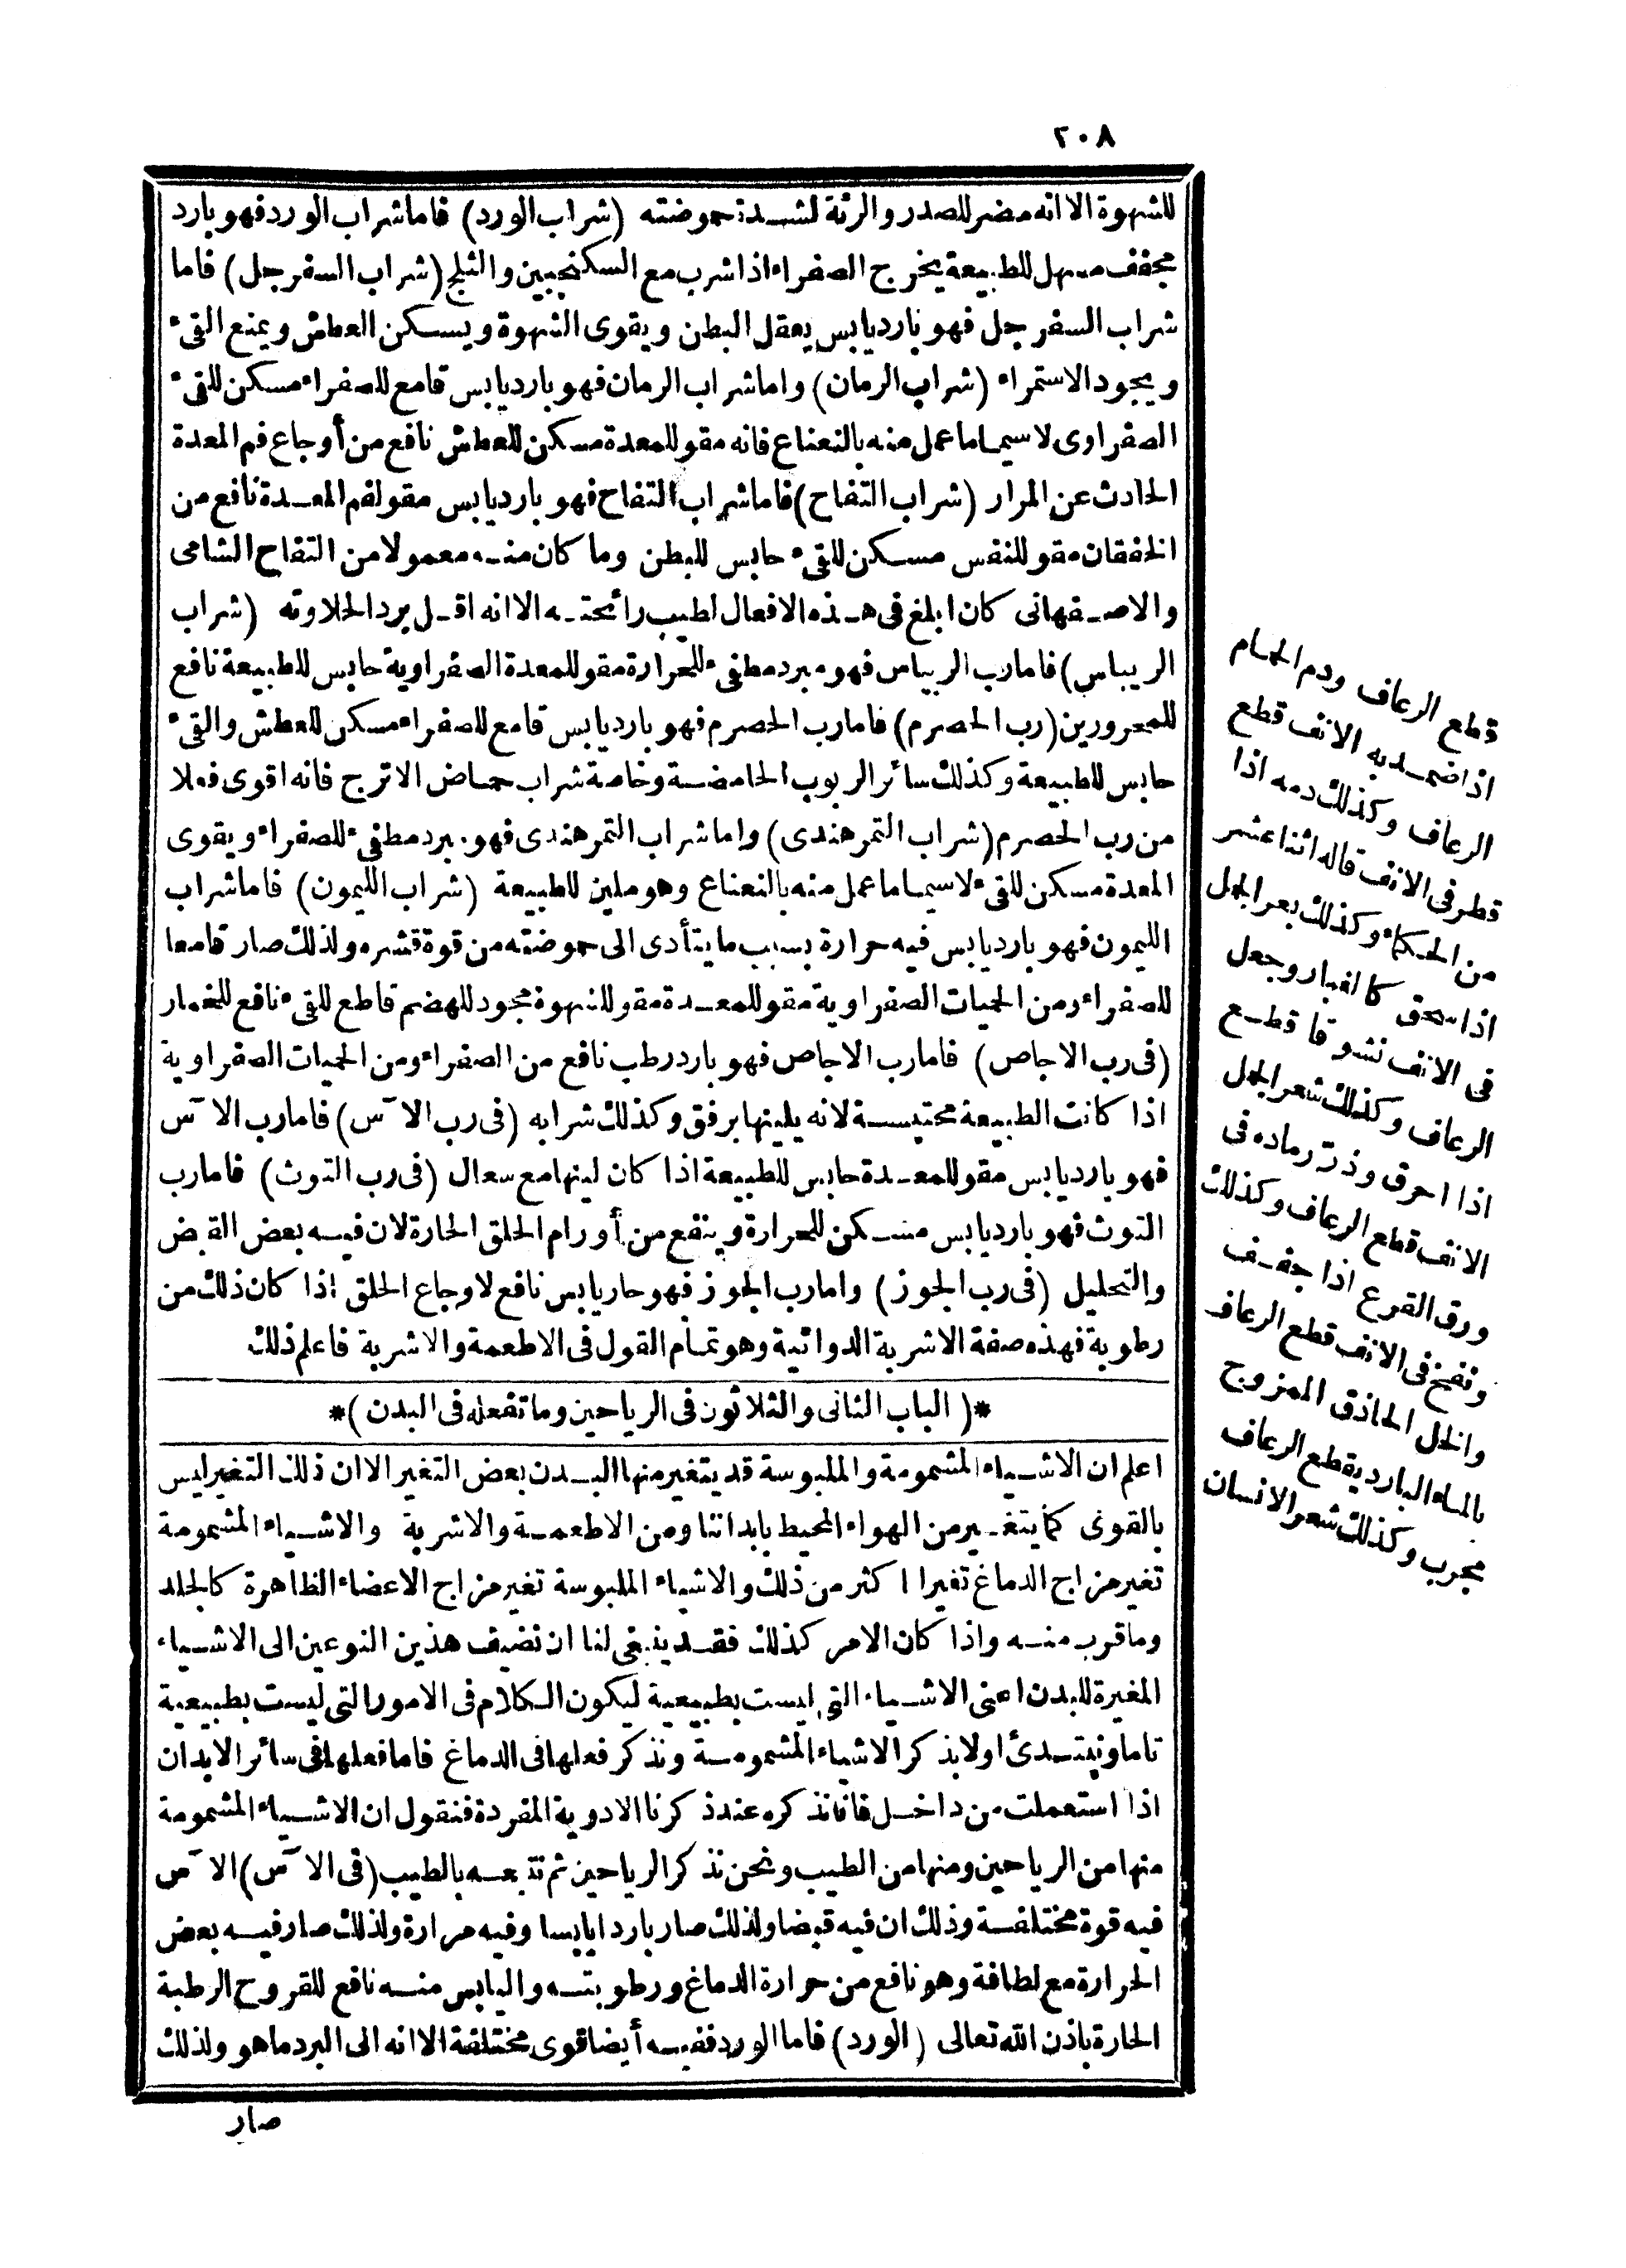 ٢٠٨
للشهوة الا انه مضر للصدر والرئة لشدة حموضته (شراب الورد) فاما شراب الورد فهو بارد
مجفف مسهل للطبيعة يخرج الصفراء اذا شرب مع السكنجبين والثلج (شراب السفرجل) فاما
شراب السفرجل فهو بارد يابس يعقل البطن ويقوى الشهوة ويسكن العطش ويمنع القىء
ويجود الاستمراء (شراب الرمان) واما شراب الرمان فهو بارد يابس قامع للصفراء مسكن للقىء
الصفراوى لا سيما ما عمل منه بالنعناع فانه مقو للمعدة مسكن للعطش نافع من أوجاع فم المعدة
الحادث عن المرار (شراب التفاح) فاما شراب التفاح فهو بارد يابس مقو لفم المعدة نافع من
الخفقان مقو للنفس مسكن للقىء حابس للبطن وما كان منه معمولا من التفاح الشامى
والاصفهانى كان ابلغ فى هذه الافعال لطيب رائحته الا انه اقل برد الحلاوته (شراب
الريباس) فاما رب الريباس فهو مبرد مطفىء للحرارة مقو للمعدة الصفراوية حابس للطبيعة نافع
للمحرورين (رب الحصرم) فاما رب الحصرم فهو بارد يابس قامع للصفراء مسكن للعطش والقىء
حابس للطبيعة وكذلك سائر الربوب الحامضة وخاصة شراب حماض الاترج فانه اقوى فعلا
من رب الحصرم (شراب التمر هندى) واما شراب التمر هندى فهو مبرد مطفىء للصفراء ويقوى
المعدة مسكن للقىء لا سيما ما عمل منه بالنعناع وهو ملين للطبيعة (شراب الليمون) فاما شراب
الليمون فهو بارد يابس فيه حرارة بسبب ما يتأدى الى حموضته من قوة قشره ولذلك صار قامعا
للصفراء ومن الحميات الصفراوية مقو للمعدة مقو للشهوة مجود للهضم قاطع للقىء نافع للخمار
(فى رب الاجاص) فاما رب الاجاص فهو بارد رطب نافع من الصفراء ومن الحميات الصفراوية
اذا كانت الطبيعة محتبسة لانه يلينها برفق وكذلك شرابه (فى رب الآس) فاما رب الآس
فهو بارد يابس مقو للمعدة حابس للطبيعة اذا كان لينها مع سعال (فى رب التوث) فاما رب
التوث فهو بارد يابس مسكن للحرارة وينفع من أورام الحلق الحارة لان فيه بعض القبض
والتحليل (فى رب الجوز) واما رب الجوز فهو حار يابس نافع لاوجاع الحلق اذا كان ذلك من
رطوبة فهذه صفة الاشربة الدوائية وهو تمام القول فى الاطعمة والاشربة فاعلم ذلك
*( الباب الثانى والثلاثون فى الرياحين وما تفعله فى البدن )*
اعلم ان الاشياء المشمومة والملبوسة قد يتغير منها البدن بعض التغير الا ان ذلك التغير ليس
بالقوى كما يتغير من الهواء المحيط بابداننا ومن الاطعمة والاشربة والاشياء المشمومة
تغير مزاج الدماغ تغيرا اكثر من ذلك والاشياء الملبوسة تغير مزاج الاعضاء الظاهرة كالجلد
وما قرب منه واذا كان الامر كذلك فقد ينبغى لنا ان نضيف هذين النوعين الى الاشياء
المغيرة للبدن اعنى الاشياء التى ليست بطبيعية ليكون الكلام فى الامور التى ليست بطبيعية
تاما ونبتدئ اولا بذكر الاشياء المشمومة ونذكر فعلها فى الدماغ فاما فعلها فى سائر الابدان
اذا استعملت من داخل فانا نذكره عند ذكرنا الادوية المفردة فنقول ان الاشياء المشمومة
منها من الرياحين ومنها من الطيب ونحن نذكر الرياحين ثم نتبعه بالطيب (فى الآس) الآس
فيه قوة مختلفة وذلك ان فيه قبضا ولذلك صار باردا يابسا وفيه مرارة ولذلك صار فيه بعض
الحرارة مع لطافة وهو نافع من حرارة الدماغ ورطوبته واليابس منه نافع للقروح الرطبة
الحارة باذن الله تعالى (الورد) فاما الورد ففيه أيضا قوى مختلفة الا انه الى البرد ما هو ولذلك
صار
قطع الرعاف ودم الحمام
اذا ضمد به الانف قطع
الرعاف وكذلك دمه اذا
قطر فى الانف قاله اثنا عشر
من الحكماء وكذلك بعر الجمل
اذا سحق كالغبار وجعل
فى الانف نشوقا قطع
الرعاف وكذلك شعر الجمل
اذا احرق وذر رماده فى
الانف قطع الرعاف وكذلك
ورق القرع اذا جفف
ونفخ فى الانف قطع الرعاف
والخل الحاذق الممزوج
بالماء البارد يقطع الرعاف
مجرب وكذلك شعر الانسان